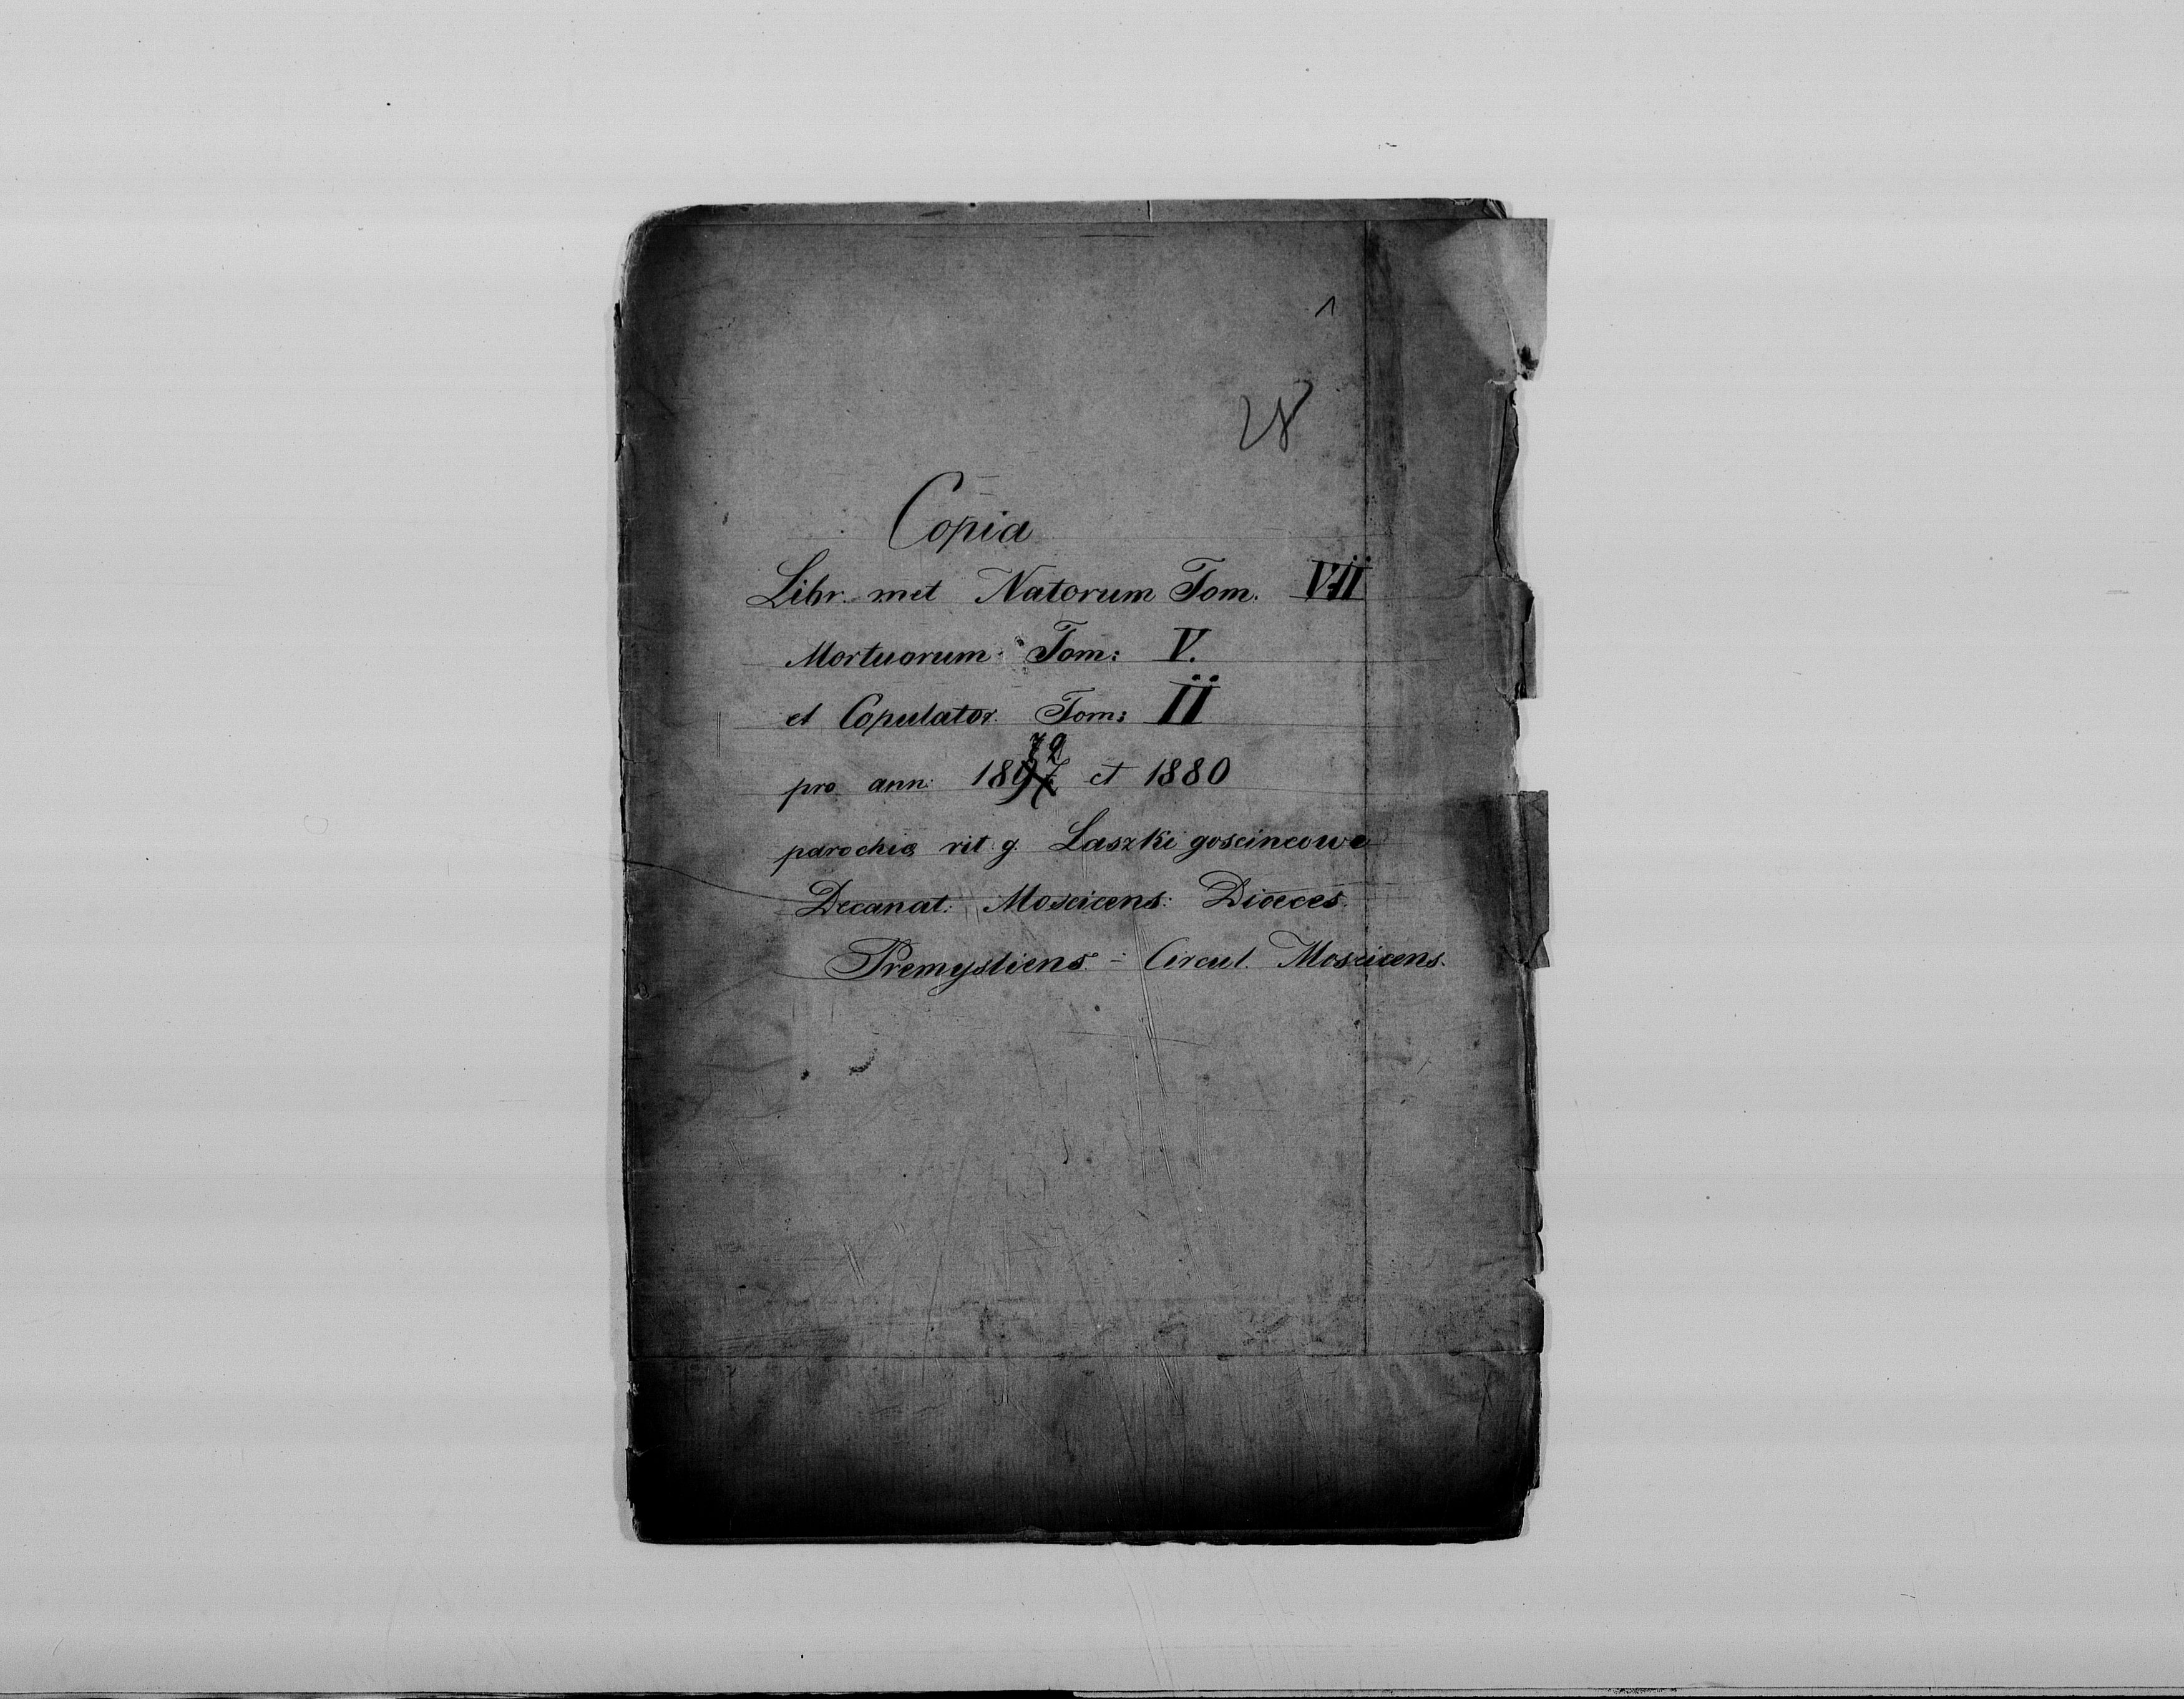 1
28
Copia
Libr. met Natorum Tom. VII
Mortuorum Tom: V.
et Copulator. Tom: II
79
pro ann: 1897 et 1880
parochia rit. g. Laszki goscincowe
Decanat: Moscicens: Dioeces.
Premysliens. - Circul. Moscicens.